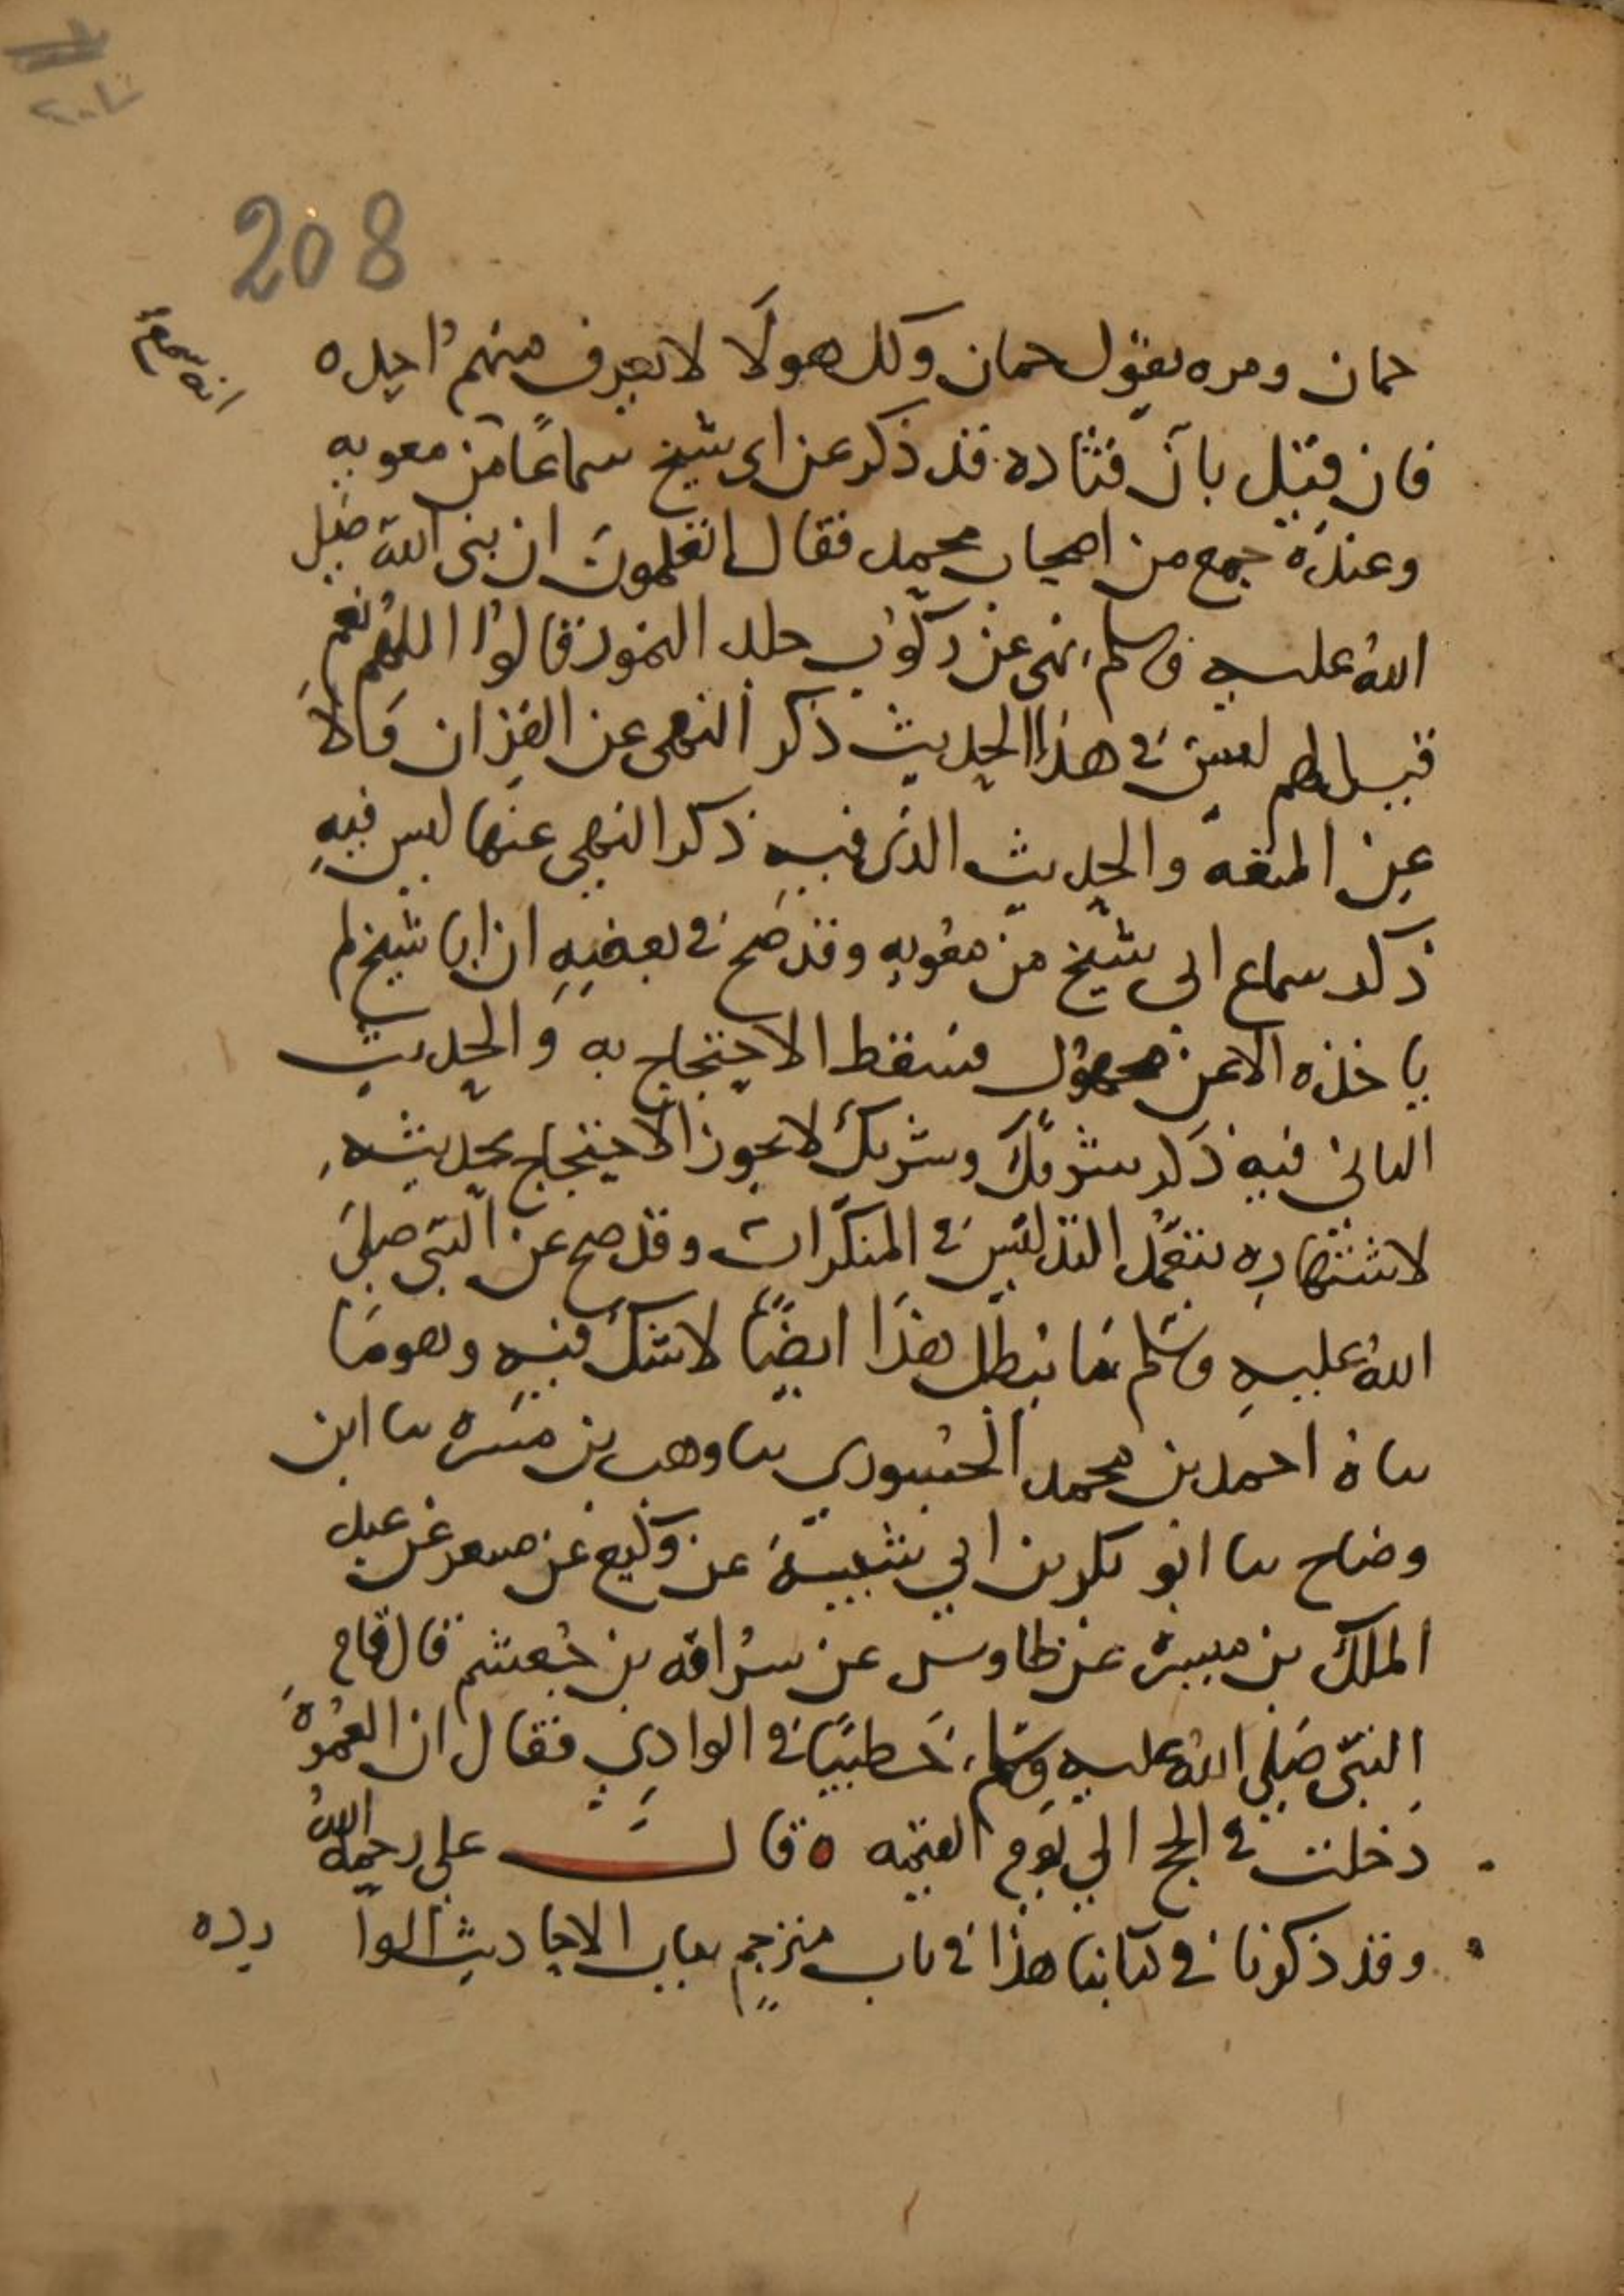 208
حمان ومره يقول حمان وكل هولا لا يعرف منهم احد ه
فان قيل بان قتاده قد ذكر عن ابي شيخ سماعا من معويه
انه سمع
وعنده جمع من اصحاب محمد فقال اتعلمون ان نبي الله صلى
الله عليه وسلم نهى عن ركوب جلد النمور قالوا اللهم نعم
قيل لهم ليس في هذا الحديث ذكر النهي عن القران ولا
عن المتعه والحديث الذي فيه ذكر النهي عنها ليس فيه
ذكر سماع ابي شيخ من معويه وقد صح في بعضه ان ابا شيخ لم
ياخذه الا عن مجهول فسقط الاحتجاج به والحديث
الثاني فيه ذكر شريك وشريك لا يجوز الاحتجاج بحديثه
لاشتهاره بتعمد التدليس في المنكرات وقد صح عن النبي صلى
الله عليه وسلم ما يبطل هذا ايضا لا شك فيه وهو ما
ساه احمد بن محمد الجسوري سا وهب بن مسره سا ابن
وضاح سا ابو بكر بن ابي شيبة عن وكيع عن مسعر عن عبد
الملك بن ميسرة عن طاوس عن سراقه بن جعشم قال قام
النبي صلى الله عليه وسلم خطيبا في الوادي فقال ان العمرة
دخلت في الحج الى يوم القيمه ه قال علي رحمه الله
وقد ذكرنا في كتابنا هذا في باب مترجم بباب الاحاديث الوا رده